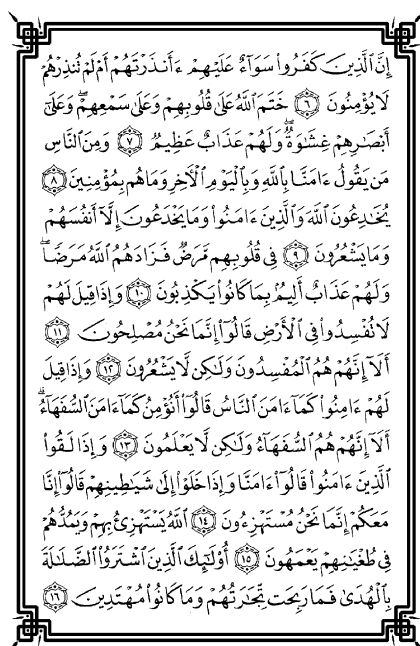 إِنَّ ٱلَّذِينَ كَفَرُوا۟ سَوَآءٌ عَلَيْهِمْ ءَأَنذَرْتَهُمْ أَمْ لَمْ تُنذِرْهُمْ
لَا يُؤْمِنُونَ ٦ خَتَمَ ٱللَّهُ عَلَىٰ قُلُوبِهِمْ وَعَلَىٰ سَمْعِهِمْ ۖ وَعَلَىٰٓ
أَبْصَٰرِهِمْ غِشَٰوَةٌ ۖ وَلَهُمْ عَذَابٌ عَظِيمٌ ٧ وَمِنَ ٱلنَّاسِ
مَن يَقُولُ ءَامَنَّا بِٱللَّهِ وَبِٱلْيَوْمِ ٱلْءَاخِرِ وَمَا هُم بِمُؤْمِنِينَ ٨
يُخَٰدِعُونَ ٱللَّهَ وَٱلَّذِينَ ءَامَنُوا۟ وَمَا يَخْدَعُونَ إِلَّآ أَنفُسَهُمْ
وَمَا يَشْعُرُونَ ٩ فِى قُلُوبِهِم مَّرَضٌ فَزَادَهُمُ ٱللَّهُ مَرَضًا ۖ
وَلَهُمْ عَذَابٌ أَلِيمٌۢ بِمَا كَانُوا۟ يَكْذِبُونَ ١٠ وَإِذَا قِيلَ لَهُمْ
لَا تُفْسِدُوا۟ فِى ٱلْأَرْضِ قَالُوٓا۟ إِنَّمَا نَحْنُ مُصْلِحُونَ ١١
أَلَآ إِنَّهُمْ هُمُ ٱلْمُفْسِدُونَ وَلَٰكِن لَّا يَشْعُرُونَ ١٢ وَإِذَا قِيلَ
لَهُمْ ءَامِنُوا۟ كَمَآ ءَامَنَ ٱلنَّاسُ قَالُوٓا۟ أَنُؤْمِنُ كَمَآ ءَامَنَ ٱلسُّفَهَآءُ ۗ
أَلَآ إِنَّهُمْ هُمُ ٱلسُّفَهَآءُ وَلَٰكِن لَّا يَعْلَمُونَ ١٣ وَإِذَا لَقُوا۟
ٱلَّذِينَ ءَامَنُوا۟ قَالُوٓا۟ ءَامَنَّا وَإِذَا خَلَوْا۟ إِلَىٰ شَيَٰطِينِهِمْ قَالُوٓا۟ إِنَّا
مَعَكُمْ إِنَّمَا نَحْنُ مُسْتَهْزِءُونَ ١٤ ٱللَّهُ يَسْتَهْزِئُ بِهِمْ وَيَمُدُّهُمْ
فِى طُغْيَٰنِهِمْ يَعْمَهُونَ ١٥ أُو۟لَٰٓئِكَ ٱلَّذِينَ ٱشْتَرَوُا۟ ٱلضَّلَٰلَةَ
بِٱلْهُدَىٰ فَمَا رَبِحَت تِّجَٰرَتُهُمْ وَمَا كَانُوا۟ مُهْتَدِينَ ١٦